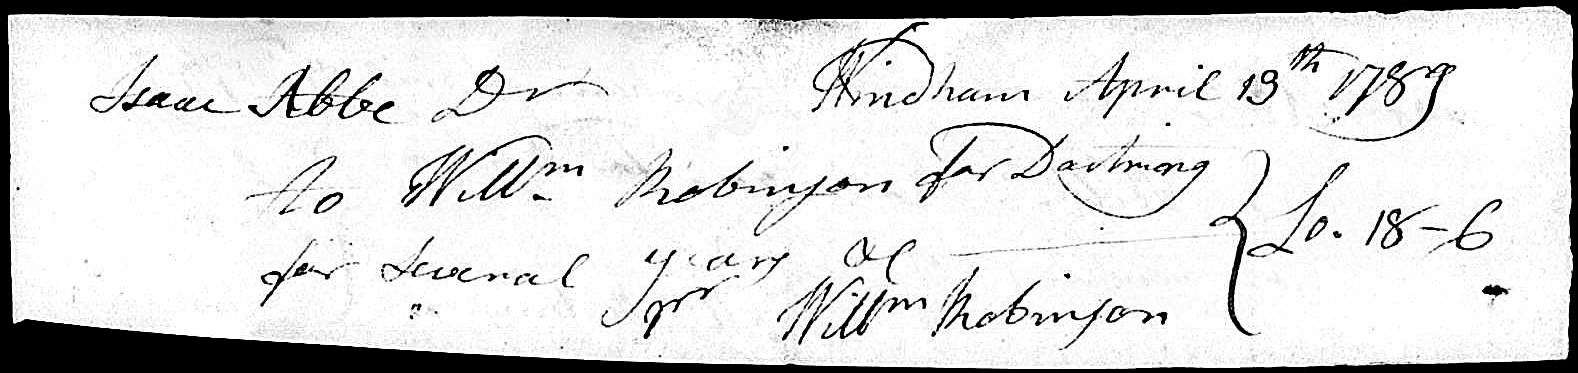 Isaac Abbe Dr Windham April 13th 1789
to Willm Robinson for Doctring
for several years &c £0. 18-6
pr Willm Robinson